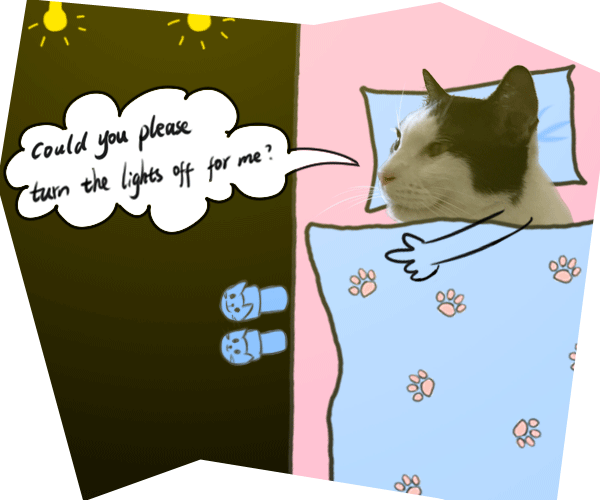 Could you please
turn the lights off for me?